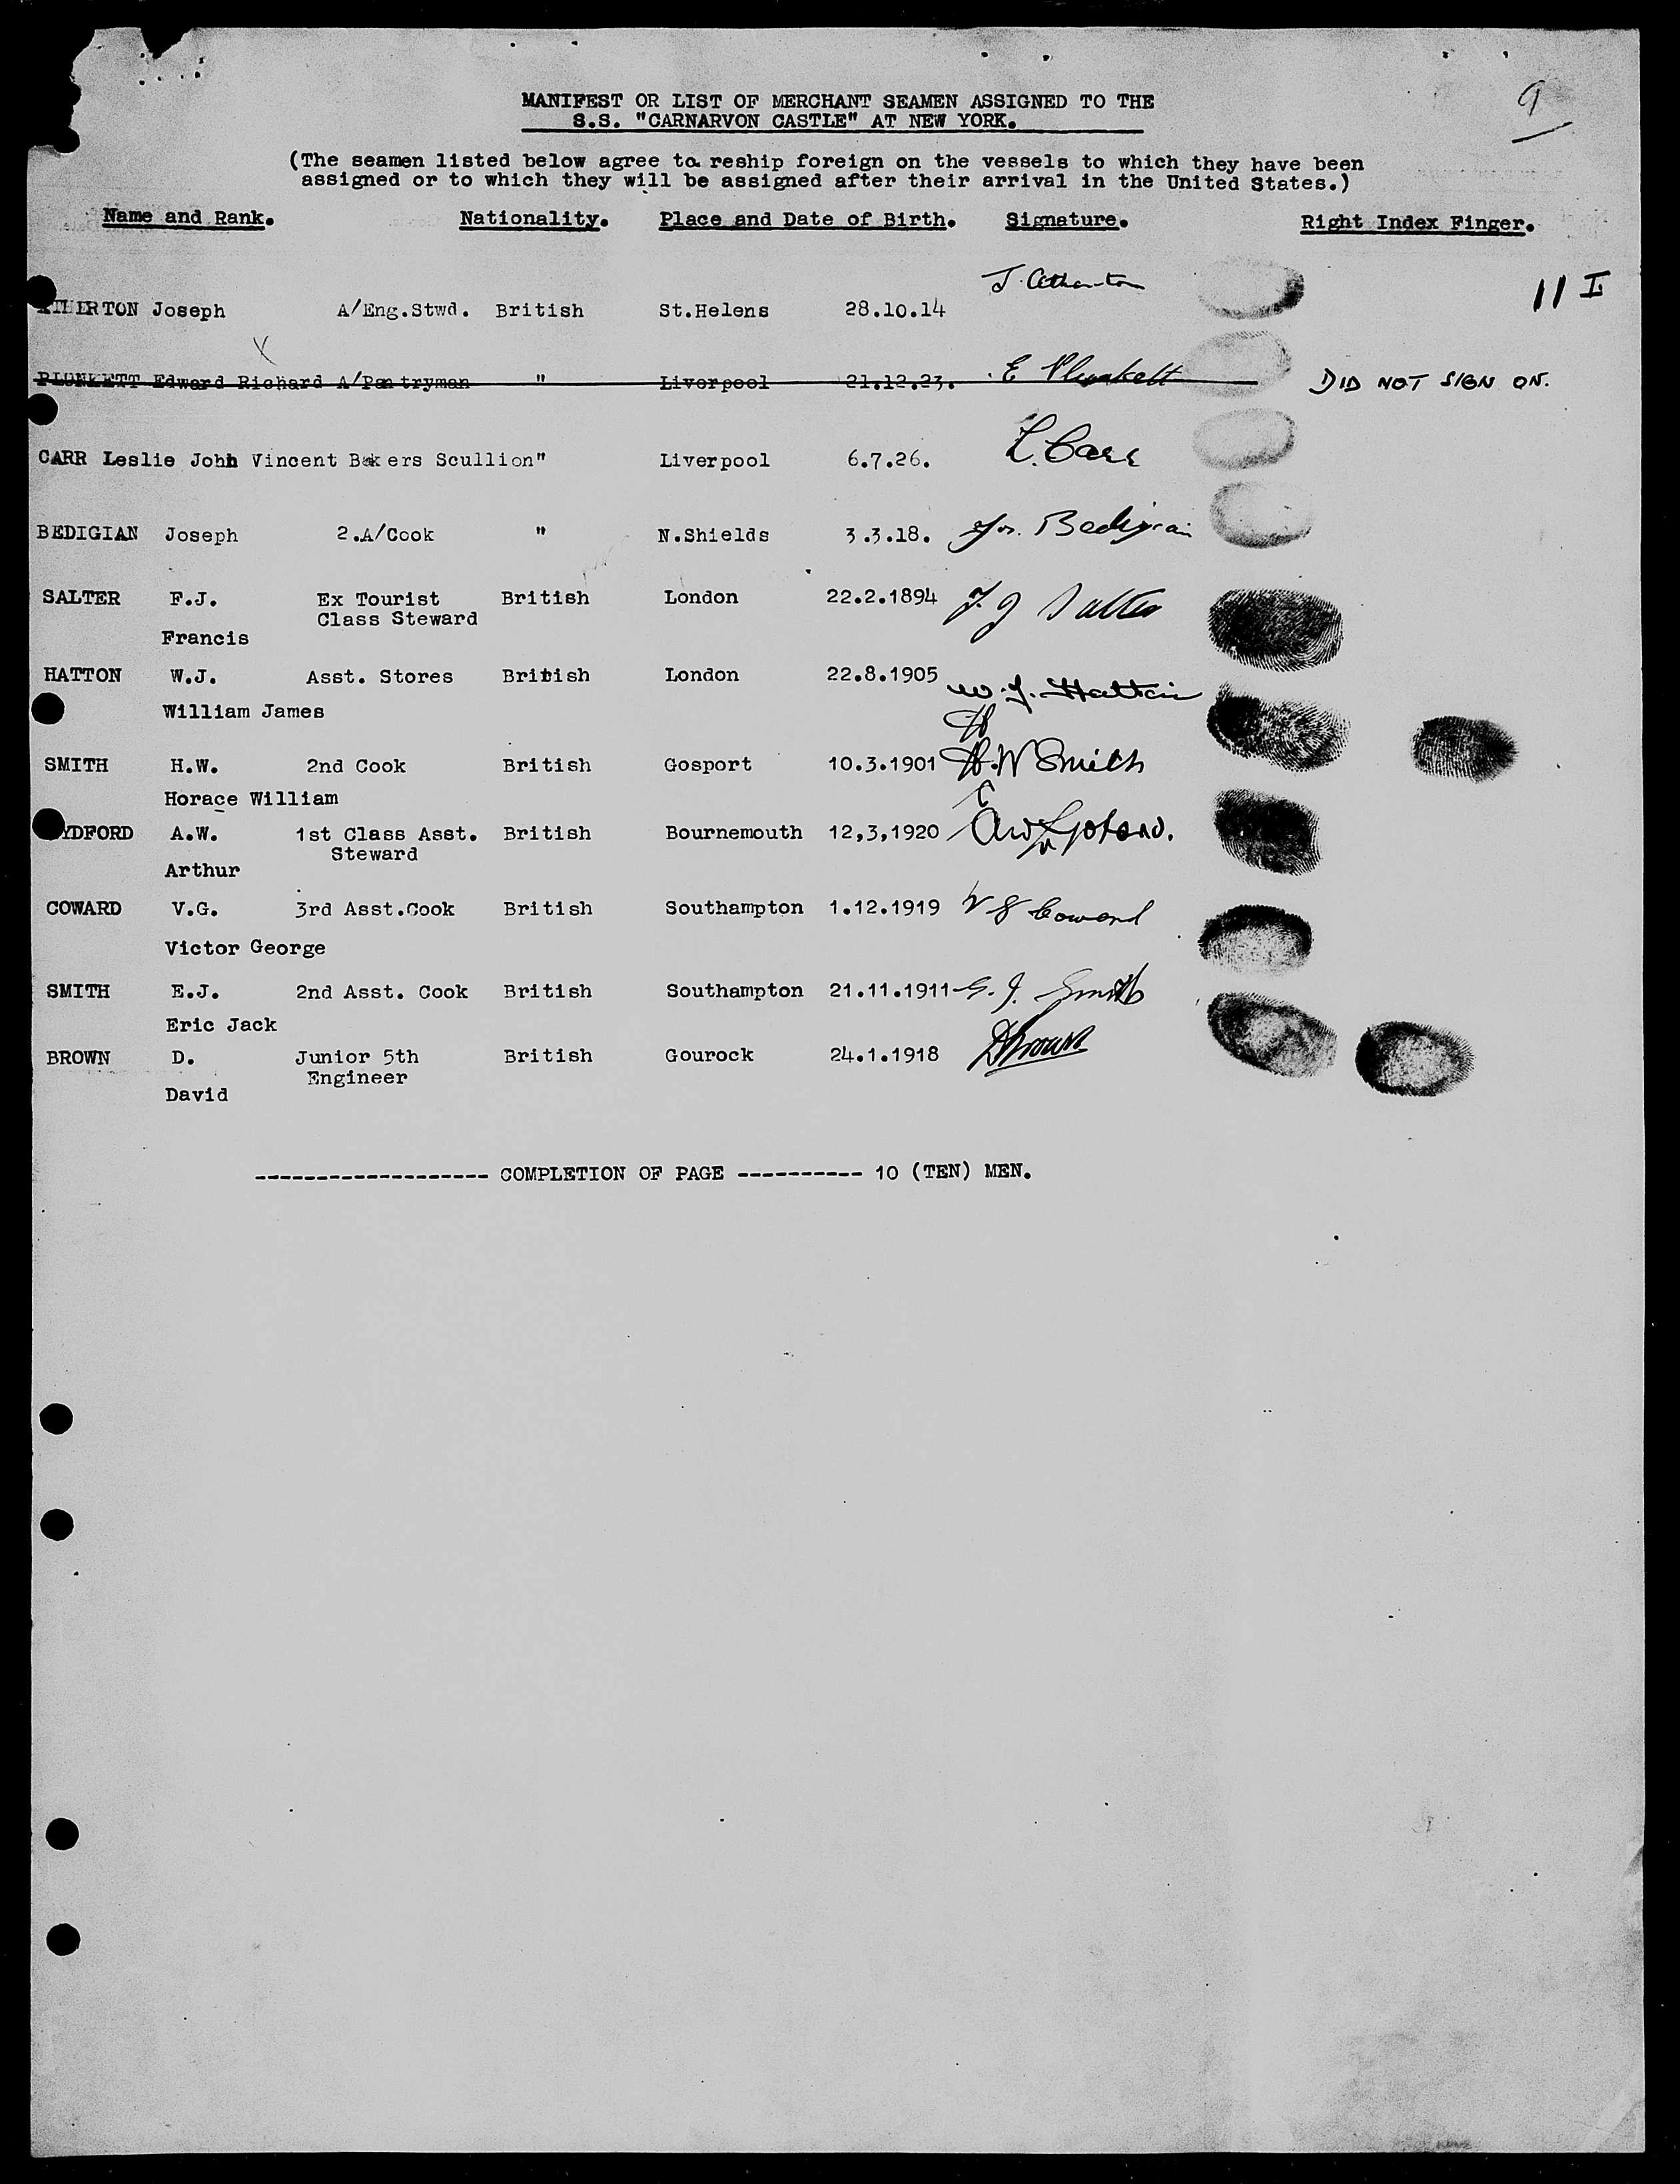 9
MANIFEST OR LIST OF MERCHANT SEAMEN ASSIGNED TO THE
S.S. "CARNARVON CASTLE" AT NEW YORK.
(The seamen listed below agree to reship foreign on the vessels to which they have been
assigned or to which they will be assigned after their arrival in the United States.)
Name and Rank. Nationality. Place and Date of Birth. Signature. Right Index Finger.
ATHERTON Joseph A/Eng.Stwd. British St.Helens 28.10.14 J. Atherton 11 I
PLUNKETT Edward Richard A/Pantryman " Liverpool 21.12.23. E Plunkett DID NOT SIGN ON.
CARR Leslie John Vincent Bakers Scullion" Liverpool 6.7.26. L. Carr
BEDIGIAN Joseph 2.A/Cook " N.Shields 3.3.18. Jos. Bedigian
SALTER F.J. Ex Tourist British London 22.2.1894 F. J Salter
Class Steward
Francis
HATTON W.J. Asst. Stores British London 22.8.1905 W. J. Hatton
William James
SMITH H.W. 2nd Cook British Gosport 10.3.1901 H.W Smith
Horace William
YDFORD A.W. 1st Class Asst. British Bournemouth 12,3,1920
Steward
Arthur
COWARD V.G. 3rd Asst.Cook British Southampton 1.12.1919 V G Coward
Victor George
SMITH E.J. 2nd Asst. Cook British Southampton 21.11.1911 E. J. Smith
Eric Jack
BROWN D. Junior 5th British Gourock 24.1.1918 D Brown
Engineer
David
------------------- COMPLETION OF PAGE ---------- 10 (TEN) MEN.